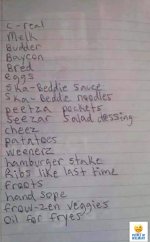 C-real
Melk
Budder
Baycon
Bred
eggs
Ska-Beddie sauce
Ska-Bedde noodles
peetza pockets
Seezar Salad dressing
cheez
patatoes
weenerz
hamburger stake
Ribs like last time
Froots
hand sope
frow-zen veggies
oil for fryes